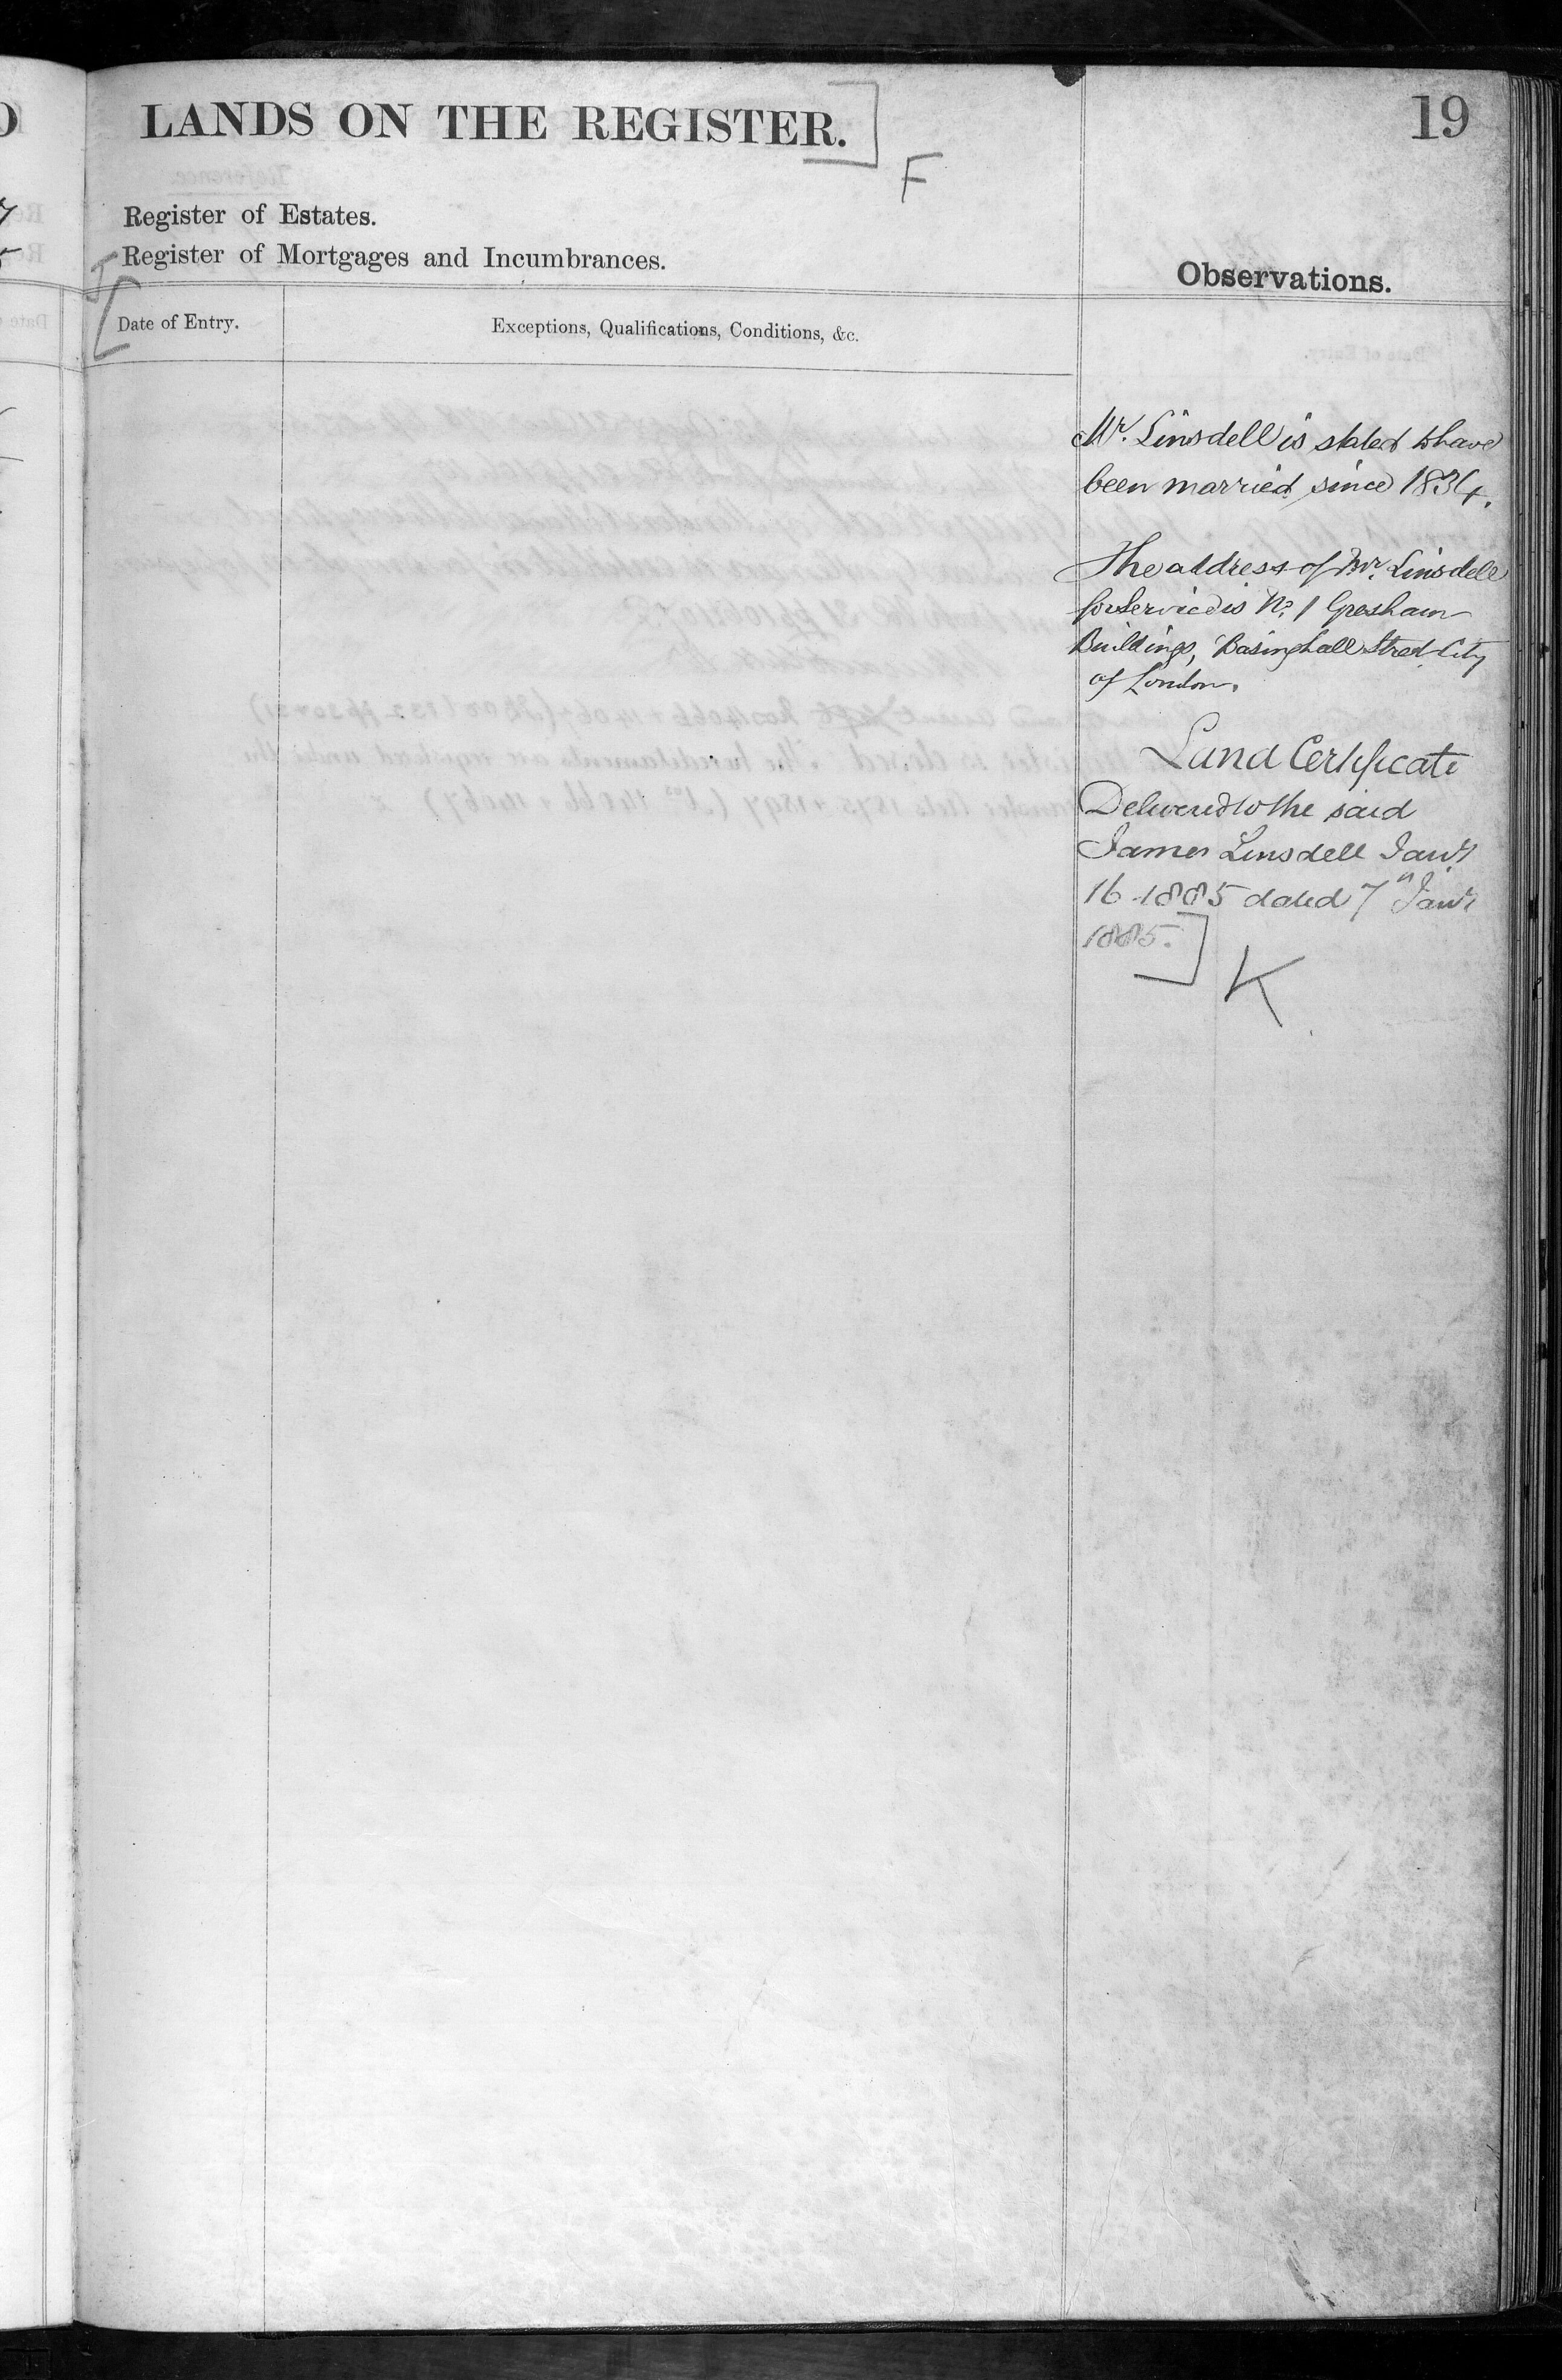 LANDS ON THE REGISTER.
19
F
Register of Estates.
Register of Mortgages and Incumbrances.
Observations.
Date of Entry.
Exceptions, Qualifications, Conditions, &c.
Mr. Linsdell is stated to have
been married since 1834.
The address of Mr. Linsdell
for Service is No. 1 Gresham
Buildings, Basinghall Street City
of London.
Land Certificate
Delivered to the said
James Linsdell Jany
16 1885 dated 7th Jany
1885.
K